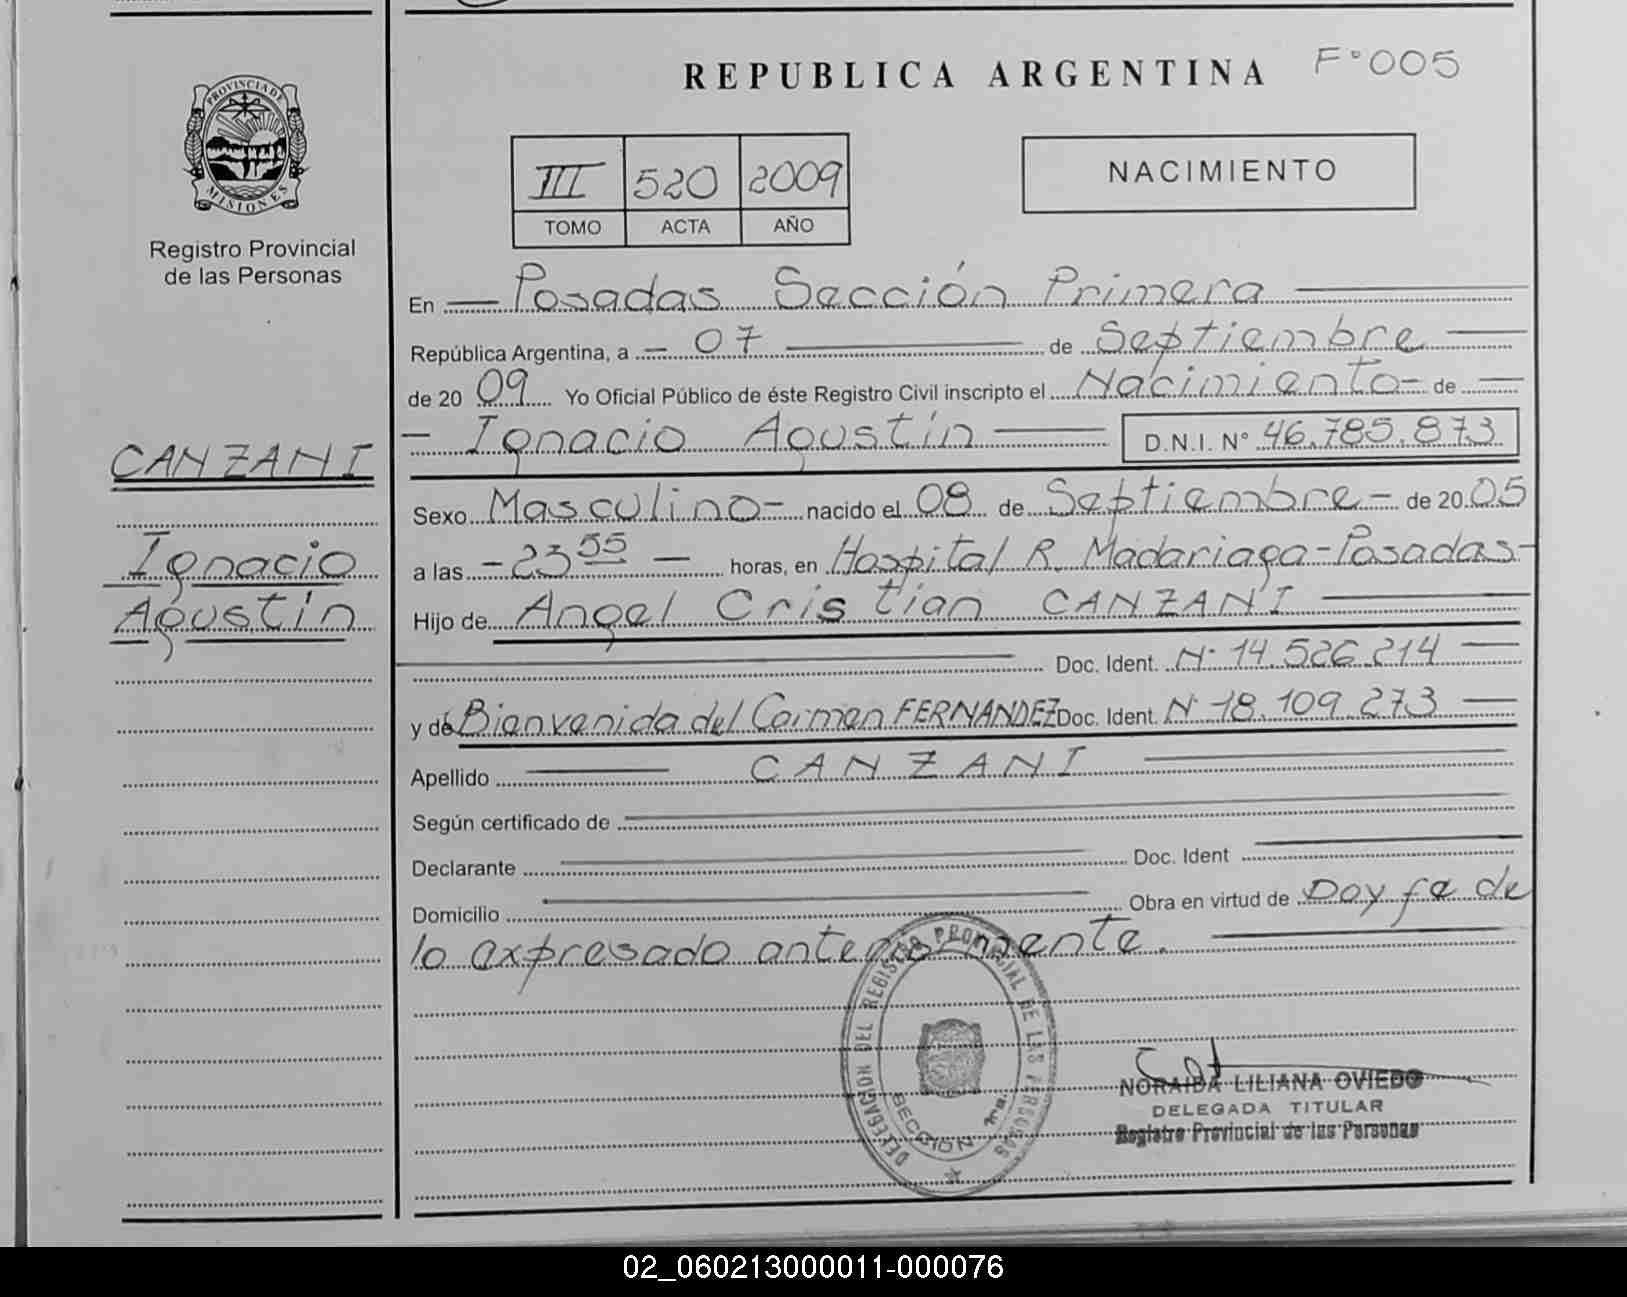 REPUBLICA ARGENTINA
F°005
PROVINCIA DE MISIONES
Registro Provincial
de las Personas
III 520 2009
TOMO ACTA AÑO
NACIMIENTO
En Posadas Sección Primera
República Argentina, a - 07 de Septiembre
de 20 09 Yo Oficial Público de éste Registro Civil inscripto el Nacimiento - de
- Ignacio Agustín D.N.I. N° 46.785.873
CANZANI
Ignacio
Agustín
Sexo Masculino - nacido el 08 de Septiembre - de 20 05
a las - 23 55 - horas, en Hospital R. Madariaga - Posadas -
Hijo de Angel Cristian CANZANI
Doc. Ident. N° 14.526.214
y de Bienvenida del Carmen FERNANDEZ Doc. Ident. N° 18.109.273
Apellido CANZANI
Según certificado de
Declarante Doc. Ident
Domicilio Obra en virtud de Doy fe de
lo expresado anteriormente.
DELEGACION DEL REGISTRO PROVINCIAL DE LAS PERSONAS
SECCION 1ra.
NORAIDA LILIANA OVIEDO
DELEGADA TITULAR
Registro Provincial de las Personas
02_060213000011-000076